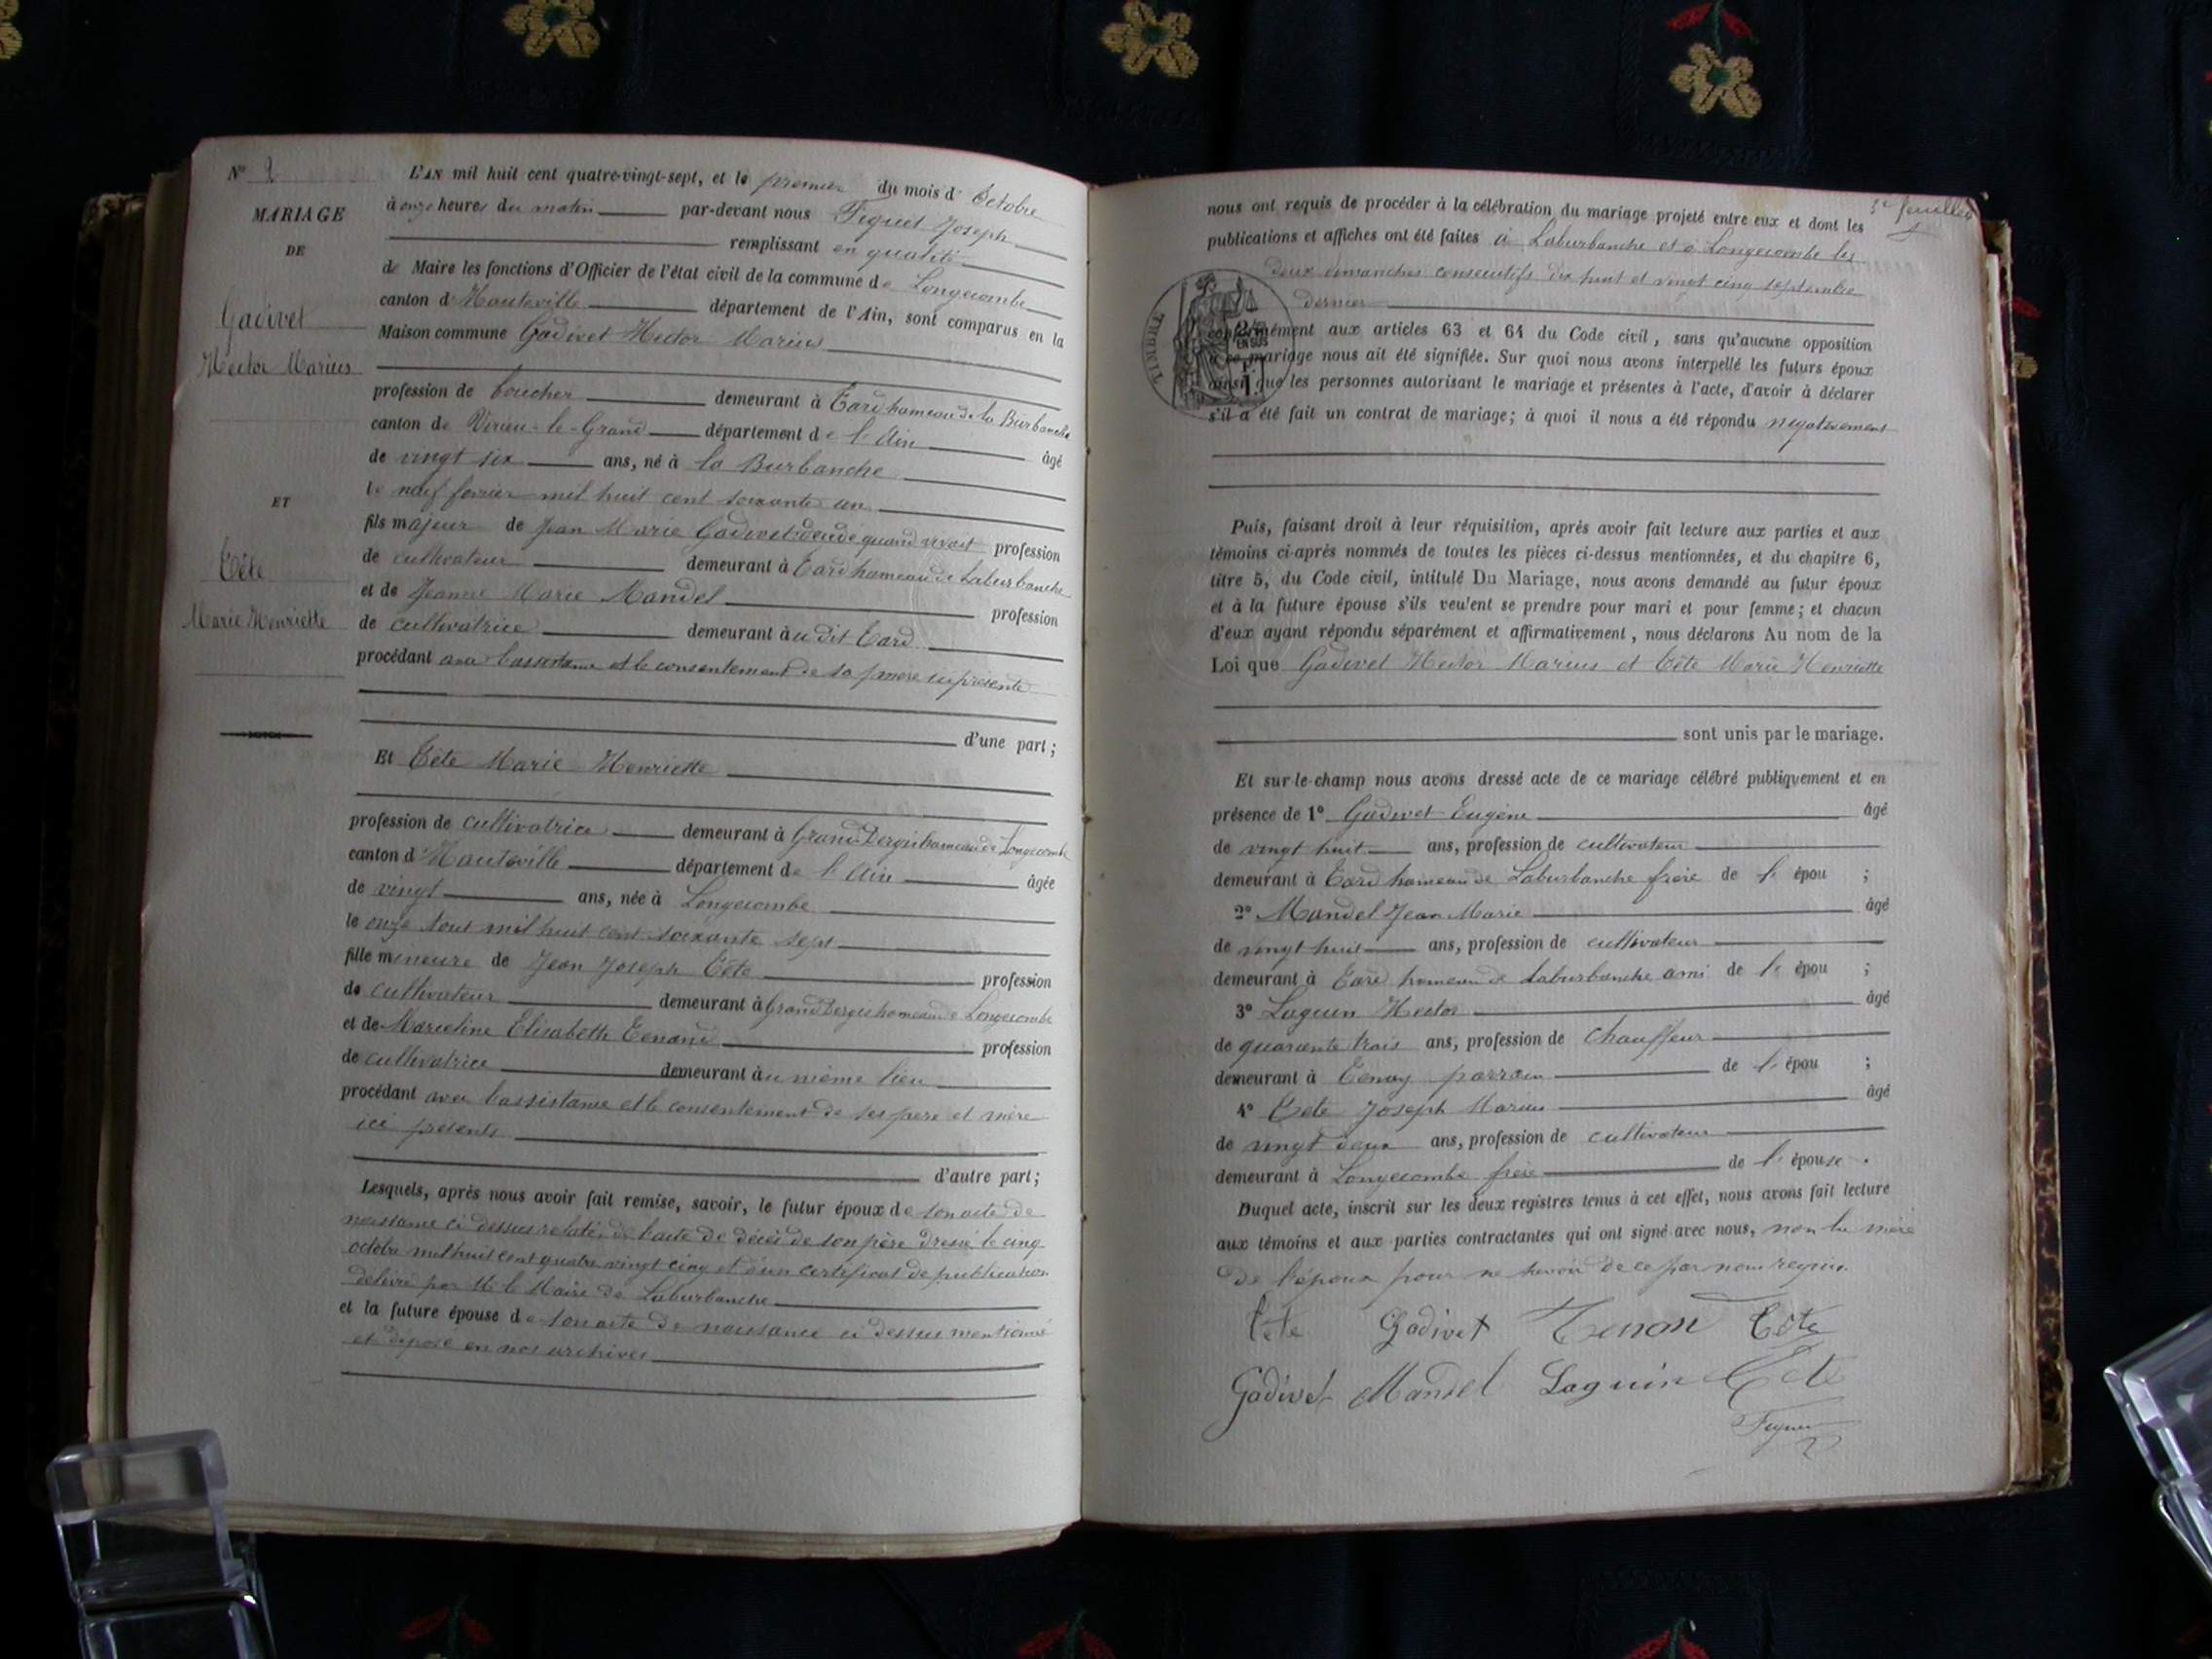 N° 2
MARIAGE
DE
Gadivet
Hector Marius
ET
Tête
Marie Henriette
L'AN mil huit cent quatre-vingt-sept, et le premier du mois d'Octobre
à onze heures du matin par-devant nous Figuet Joseph
remplissant en qualité
de Maire les fonctions d'Officier de l'état civil de la commune de Longecombe
canton d'Hauteville département de l'Ain, sont comparus en la
Maison commune Gadivet Hector Marius
profession de boucher demeurant à Tard hameau de la Burbanche
canton de Virieu-le-Grand département de l'Ain âgé
de vingt six ans, né à la Burbanche
le neuf fevrier mil huit cent soixante un
fils majeur de Jean Marie Gadivet décédé quand vivait profession
de cultivateur demeurant à Tard hameau de Laburbanche
et de Jeanne Marie Mandel profession
de cultivatrice demeurant à u dit Tard
procédant avec l'assistance et le consentement de sa mère ici présente
d'une part;
Et Tête Marie Henriette
profession de cultivatrice demeurant à Grand Dergis hameau de Longecombe
canton d'Hauteville département de l'Ain âgée
de vingt ans, née à Longecombe
le onze Aout mil huit cent soixante sept
fille mineure de Jean Joseph Tête profession
de cultivateur demeurant à Grand Dergis hameau de Longecombe
et de Marceline Elisabeth Tenand profession
de cultivatrice demeurant à u même lieu
procédant avec l'assistance et le consentement de ses père et mère
ici présents
d'autre part;
Lesquels, après nous avoir fait remise, savoir, le futur époux de son acte de
naissance ci dessus relaté, de l'acte de décès de son père dressé le cinq
octobre mil huit cent quatre vingt cinq et d'un certificat de publication
délivré par M. le Maire de Laburbanche
et la future épouse de son acte de naissance ci dessus mentionné
et déposé en nos archives
3e feuillet
nous ont requis de procéder à la célébration du mariage projeté entre eux et dont les
publications et affiches ont été faites à Laburbanche et à Longecombe les
deux dimanches consecutifs dix huit et vingt cinq septembre
dernier
TIMBRE
2/10 EN SUS
conformément aux articles 63 et 64 du Code civil, sans qu'aucune opposition
à ce mariage nous ait été signifiée. Sur quoi nous avons interpellé les futurs époux
ainsi que les personnes autorisant le mariage et présentes à l'acte, d'avoir à déclarer
s'il a été fait un contrat de mariage; à quoi il nous a été répondu négativement
Puis, faisant droit à leur réquisition, après avoir fait lecture aux parties et aux
témoins ci-après nommés de toutes les pièces ci-dessus mentionnées, et du chapitre 6,
titre 5, du Code civil, intitulé Du Mariage, nous avons demandé au futur époux
et à la future épouse s'ils veulent se prendre pour mari et pour femme; et chacun
d'eux ayant répondu séparément et affirmativement, nous déclarons Au nom de la
Loi que Gadivet Hector Marius et Tête Marie Henriette
sont unis par le mariage.
Et sur-le-champ nous avons dressé acte de ce mariage célébré publiquement et en
présence de 1° Gadivet Eugène âgé
de vingt huit ans, profession de cultivateur
demeurant à Tard hameau de Laburbanche frère de l' épou ;
2° Mandel Jean Marie âgé
de vingt huit ans, profession de cultivateur
demeurant à Tard hameau de Laburbanche ami de l' épou ;
3° Laguin Hector âgé
de quarante trois ans, profession de chauffeur
demeurant à Tenay parrain de l' épou ;
4° Tête Joseph Marius âgé
de vingt deux ans, profession de cultivateur
demeurant à Longecombe frère de l' épouse.
Duquel acte, inscrit sur les deux registres tenus à cet effet, nous avons fait lecture
aux témoins et aux parties contractantes qui ont signé avec nous, non la mère
de l'époux pour ne savoir de ce par nous requis.
Tête Gadivet Tenan Tête
Gadivet Mandel Laguin Tête
Figuet